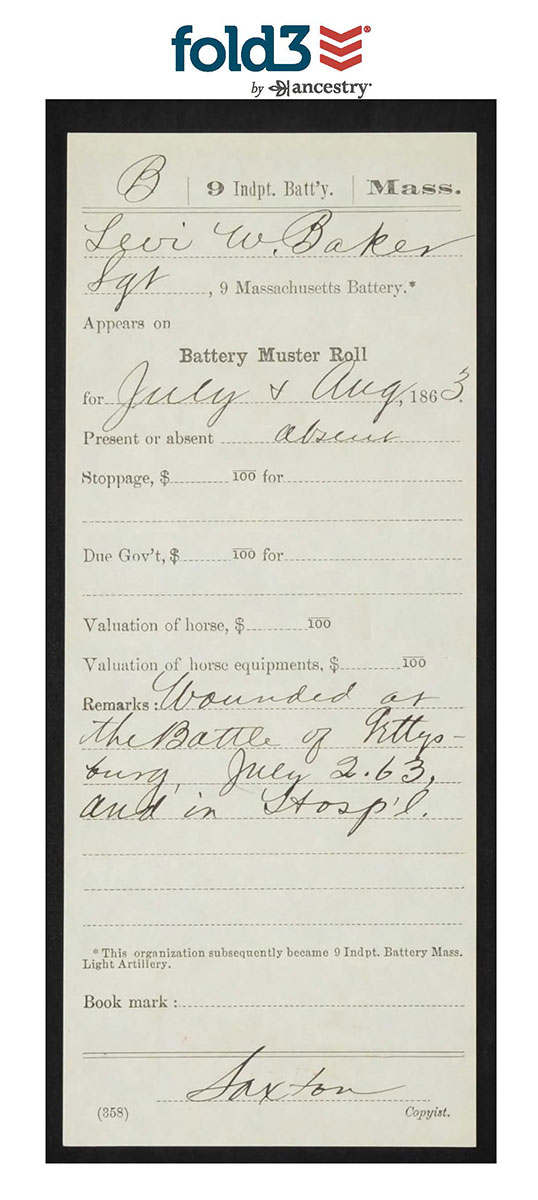 fold3®
by ancestry
B | 9 Indpt. Batt'y. | Mass.
Levi W. Baker
Sgt, 9 Massachusetts Battery.*
Appears on
Battery Muster Roll
for July & Aug, 1863.
Present or absent absent
Stoppage, $ 100 for
Due Gov't, $ 100 for
Valuation of horse, $ 100
Valuation of horse equipments, $ 100
Remarks: Wounded at
the Battle of Gettys-
burg, July 2. 63,
and in Hosp'l.
* This organization subsequently became 9 Indpt. Battery Mass.
Light Artillery.
Book mark:
Saxton
(358) Copyist.